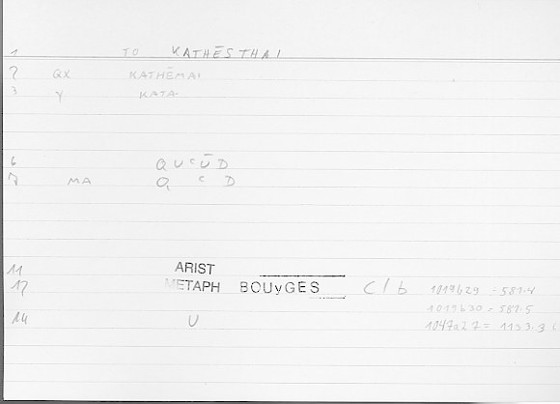 1 TO KATHĒSTHAI
2 QX KATHĒMAI
3 Y KATA-
6 Q U C Ū D
7 MA Q C D
11 ARIST
12 METAPH BOUyGES C/b 1017b29 = 581.4
1017b30 = 581.5
14 U 1047a27 = 1133.3